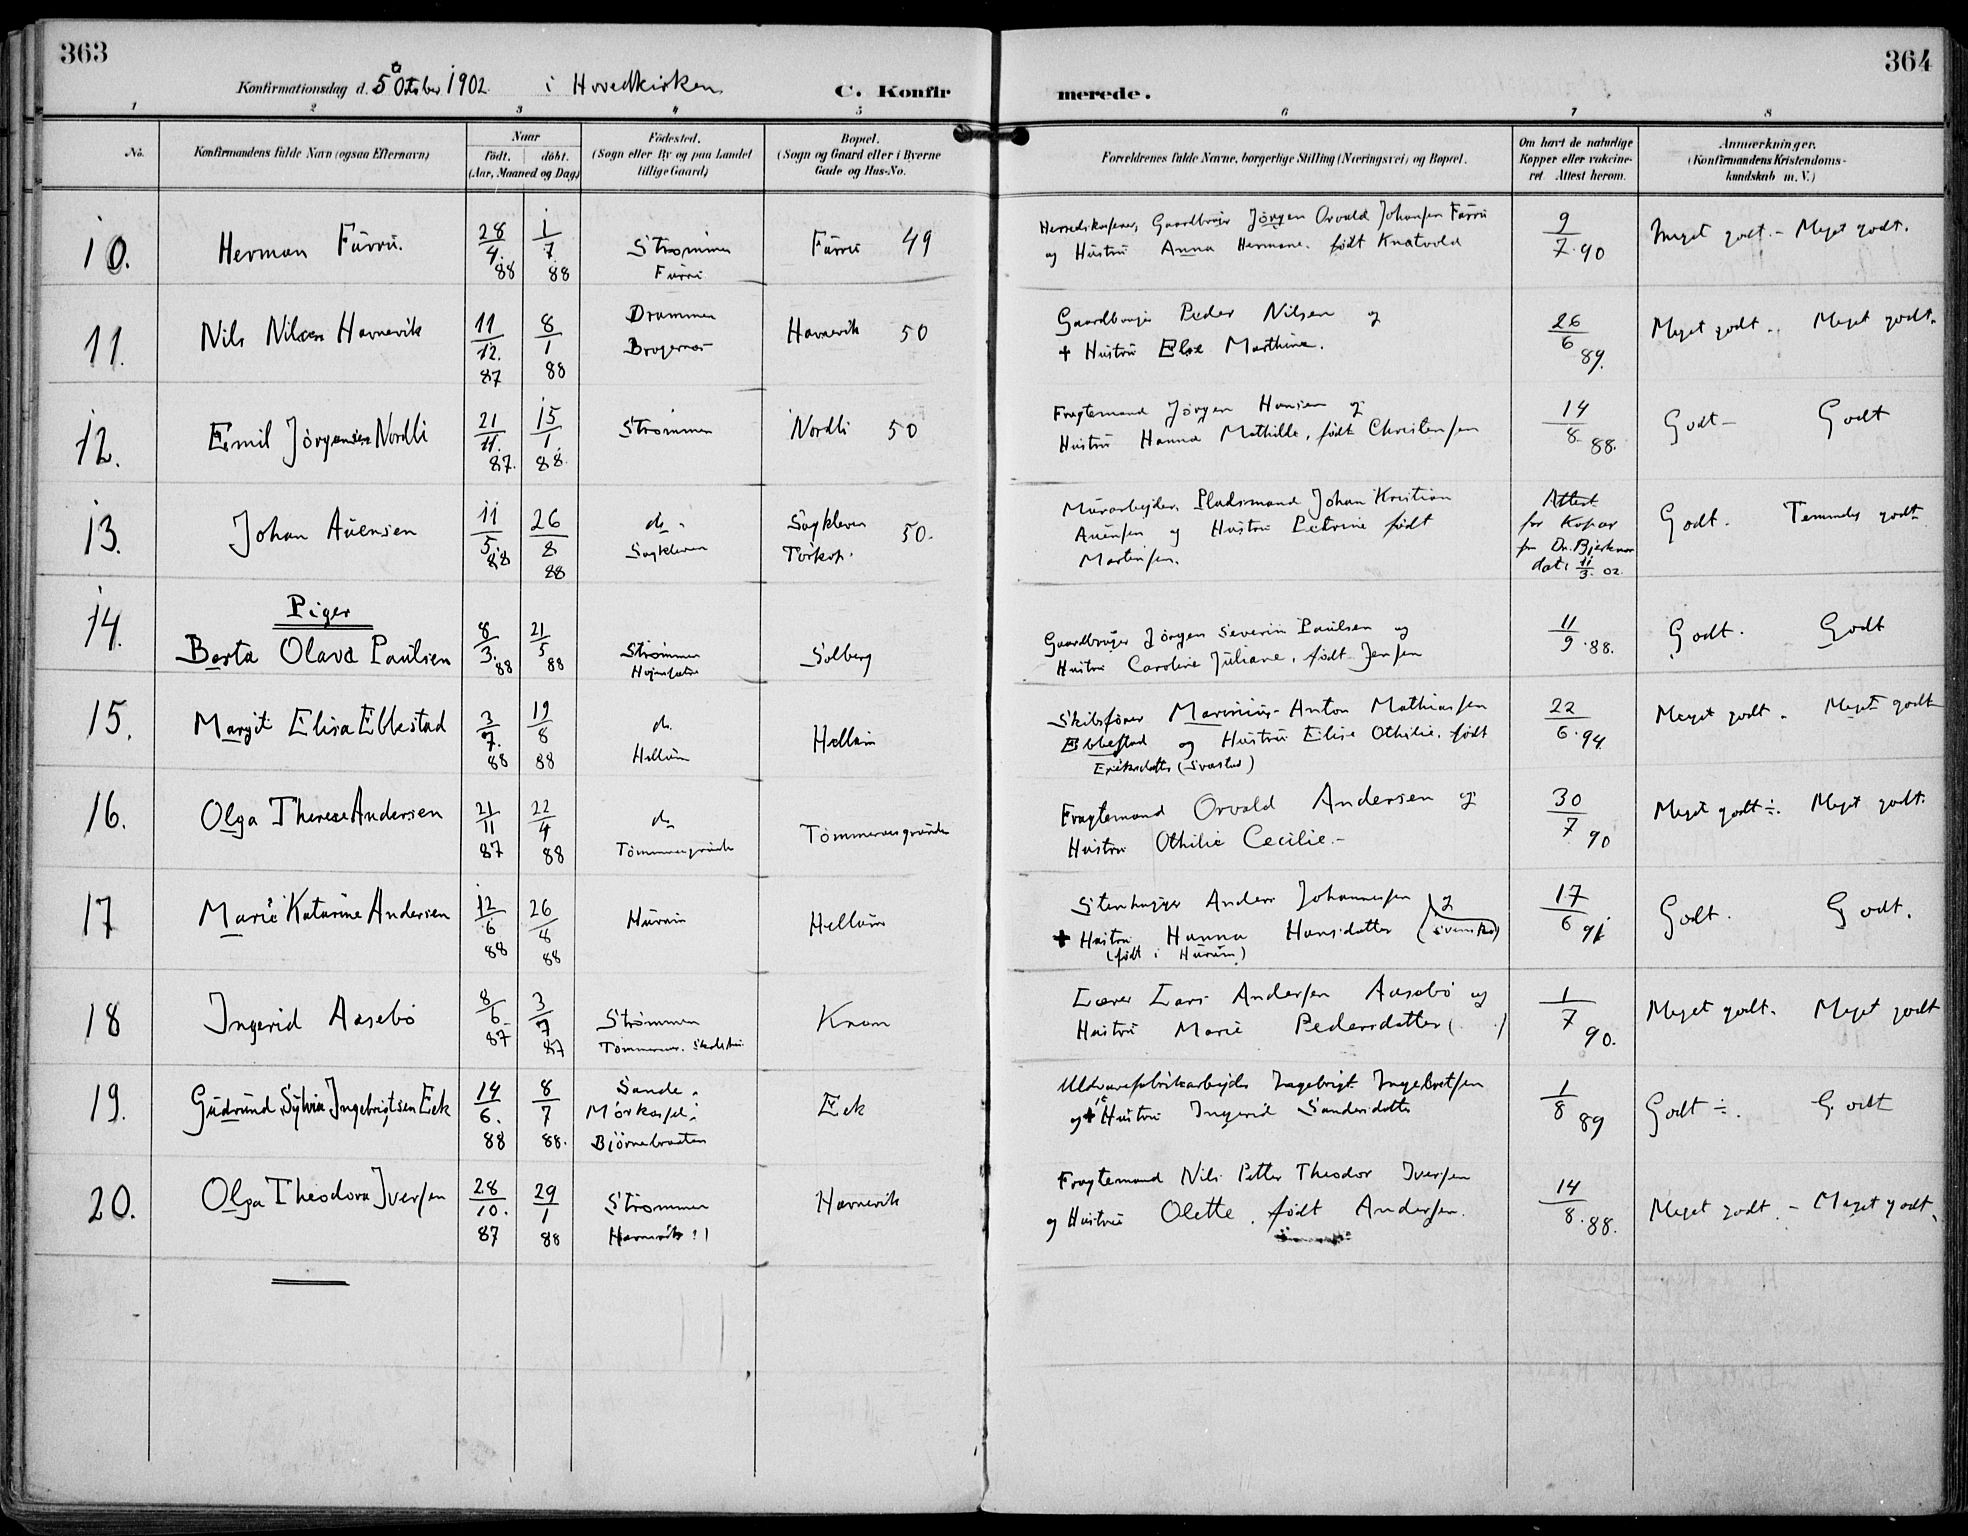 363
364
Konfirmationsdag d. 5te Oktober 1902 i Hovedkirken
C. Konfirmerede.
1 2 3 4 5 6 7 8
No.
Konfirmandens fulde Navn (ogsaa Efternavn)
Naar
født. döbt.
(Aar, Maaned og Dag)
Födested.
(Sogn eller By og paa Landet
tillige Gaard)
Bopæl.
(Sogn og Gaard eller i Byerne
Gade og Hus-No.
Forældrenes fulde Navne, borgerlige Stilling (Næringsvei) og Bopæl.
Om havt de naturlige
Kopper eller vakcine-
ret Attest herom.
Anmærkninger.
(Konfirmandens Kristendoms-
kundskab m. V.)
10. Herman Fürrü. 28/4. 88 1/7. 88 Strømmen Fürrü Fürrü 49
Gaardbruger Jörgen Orvald Johansen Fürrü
og Hustrü Anna Hermane. født Knatvold
9/7. 90 Meget godt. - Meget godt.
11. Nils Nilsen Havnevik 11/12. 87 8/1 88 Drammen Bragernes Havnevik 50
Gaardbruger Peder Nilsen og
+ Hustrü Else Marthine.
26/6 89. Meget godt. Meget godt.
12. Emil Jörgensen Nordli 21/11. 87. 15/1 88. Strømmen Nordli 50
Fragtemand Jørgen Hansen og
Hustrü Hanna Mathilde, født Christensen
14/8. 88. Godt - Godt
13. Johan Aüensen 11/5 88 26/8 88 do. Sagkleven Sagkleven Torkop. 50.
Mürarbejder, Pladsmand Johan Kristian
Aüensen og Hustrü Petrine født
Martinsen.
Attest
for Kopar
fra Dr. Bjerknes
dat. 11/3. 02.
Godt. Temmelig godt
Piger
14. Berta Olava Paülsen 8/3. 88 21/5 88 Strømmen Solberg
Gaardbruger Jörgen Severin Paülsen og
Hustrü Caroline Jüliane, født Jensen
11/9. 88. Godt. Godt
15. Margit Elisa Ebbestad 3/7. 88 19/8 88 do. Hellüm Hellüm
Skibsfører Marinius Anton Mathiassen
Ebbestad og Hüstrü Elise Othilie. født
Eriksdatter (Svastad)
22/6. 94. Meget godt. Meget godt
16. Olga Therese Andersen 21/11 87 22/4 88 do. Tömmeraasgründe Tömmeraasgründe
Fragtemand Orvald Andersen og
Hustrü Othilie Cecilie. -
30/7. 90 Meget godt ÷. Meget godt.
17 Marie Katarine Andersen 12/6 88 26/8 88 Hürüm Hellüm
Stenhugger Anders Johannesen og
+ Hustrü Hanna Hansdatter (svensked)
(født i Hürüm)
17/6 91 Godt. Godt.
18 Ingerid Aasebö 8/6 87 3/7 87 Strömmen Tömmeraas. Knam
Lærer Lars Andersen Aasebö og
Hustrü Marie Pedersdatter ( )
1/7 90. Meget godt. Meget godt
19. Güdründ Sylvia Ingebrigtsen Eek 14/6. 88 8/7 88. Sande. Mörkaspel Björnebraaten Eek
Uldvarefabrikarbejder Ingebrigt Ingebretsen
og + Hustrü Ingerid Sandersdatter
1/8 89 Godt ÷. Godt
20. Olga Theodora Iversen 28/10. 87 29/1 88 Strømmen Havnevik !) Havnevik
Fragtemand Nils Petter Theodor Iversen
og Hustrü Olette, født Andersen.
14/8. 88. Meget godt. - Meget godt.